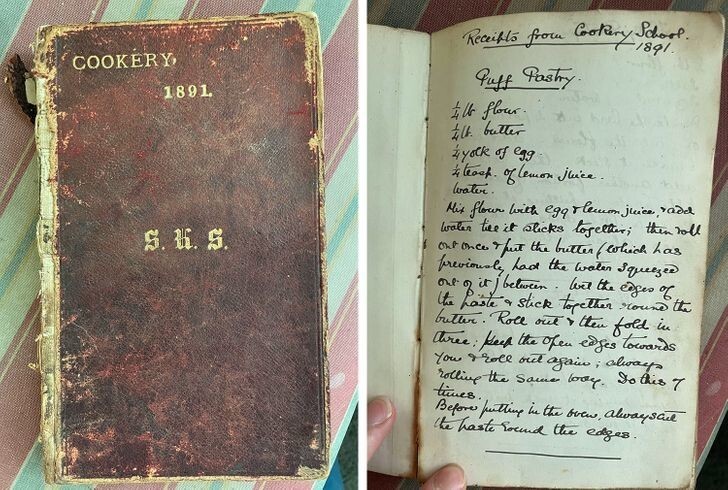 COOKERY,
1891.
S. H. S.
Receipts from Cookery School.
1891.
Puff Pastry.
¼ lb flour.
¼ lb. butter
¼ yolk of egg.
¼ teasp. of lemon juice.
water.
Mix flour with egg & lemon juice, & add
water till it sticks together; then roll
out once & put the butter (which has
previously had the water squeezed
out of it) between. Wet the edges of
the paste & stick together round the
butter. Roll out & then fold in
three; keep the open edges towards
you & roll out again; always
rolling the same way. Do this 7
times.
Before putting in the oven, always cut
the paste round the edges.